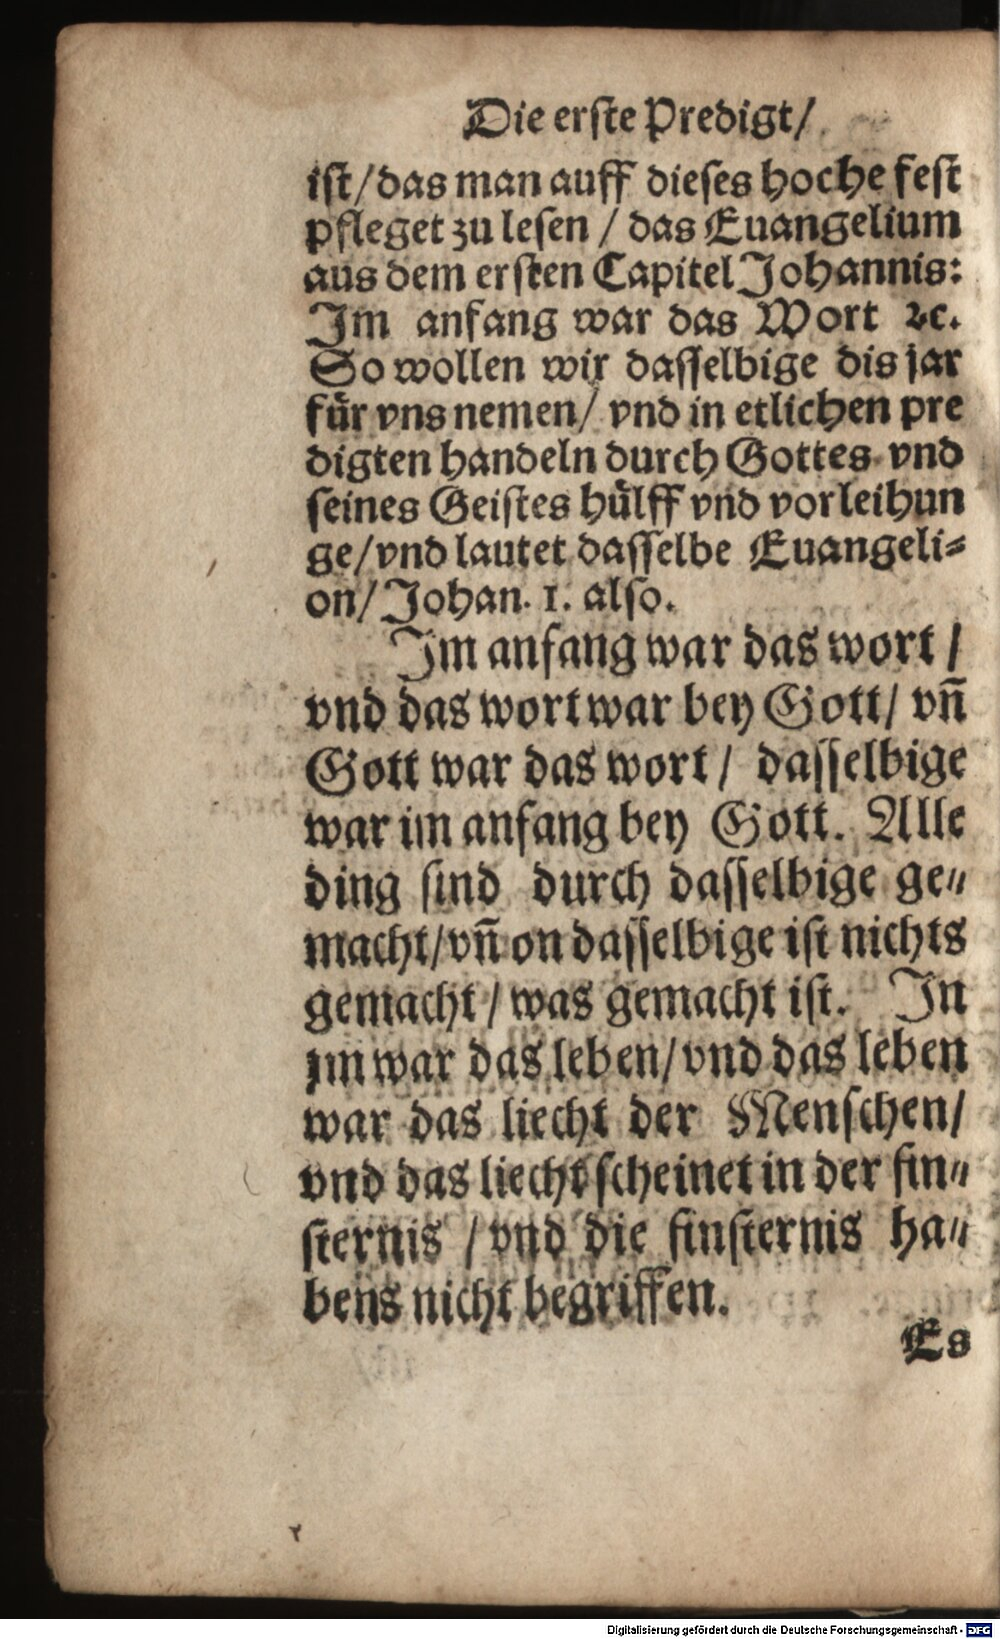 Die erste Predigt/
ist/das man auff dieses hoche fest
pfleget zu lesen / das Euangelium
aus dem ersten Capitel Johannis:
Im anfang war das Wort ꝛc.
So wollen wir dasselbige dis jar
für vns nemen/ vnd in etlichen pre
digten handeln durch Gottes vnd
seines Geistes hülff vnd vorleihun
ge/vnd lautet dasselbe Euangeli⸗
on/ Johan. 1. also.
Im anfang war das wort /
vnd das wort war bey Gott/ vn̄
Gott war das wort / dasselbige
war im anfang bey Gott. Alle
ding sind durch dasselbige ge⸗
macht/vn̄ on dasselbige ist nichts
gemacht / was gemacht ist. In
jm war das leben/vnd das leben
war das liecht der Menschen/
vnd das liecht scheinet in der fin⸗
sternis / vnd die finsternis ha⸗
bens nicht begriffen.
Es
Digitalisierung gefördert durch die Deutsche Forschungsgemeinschaft - DFG